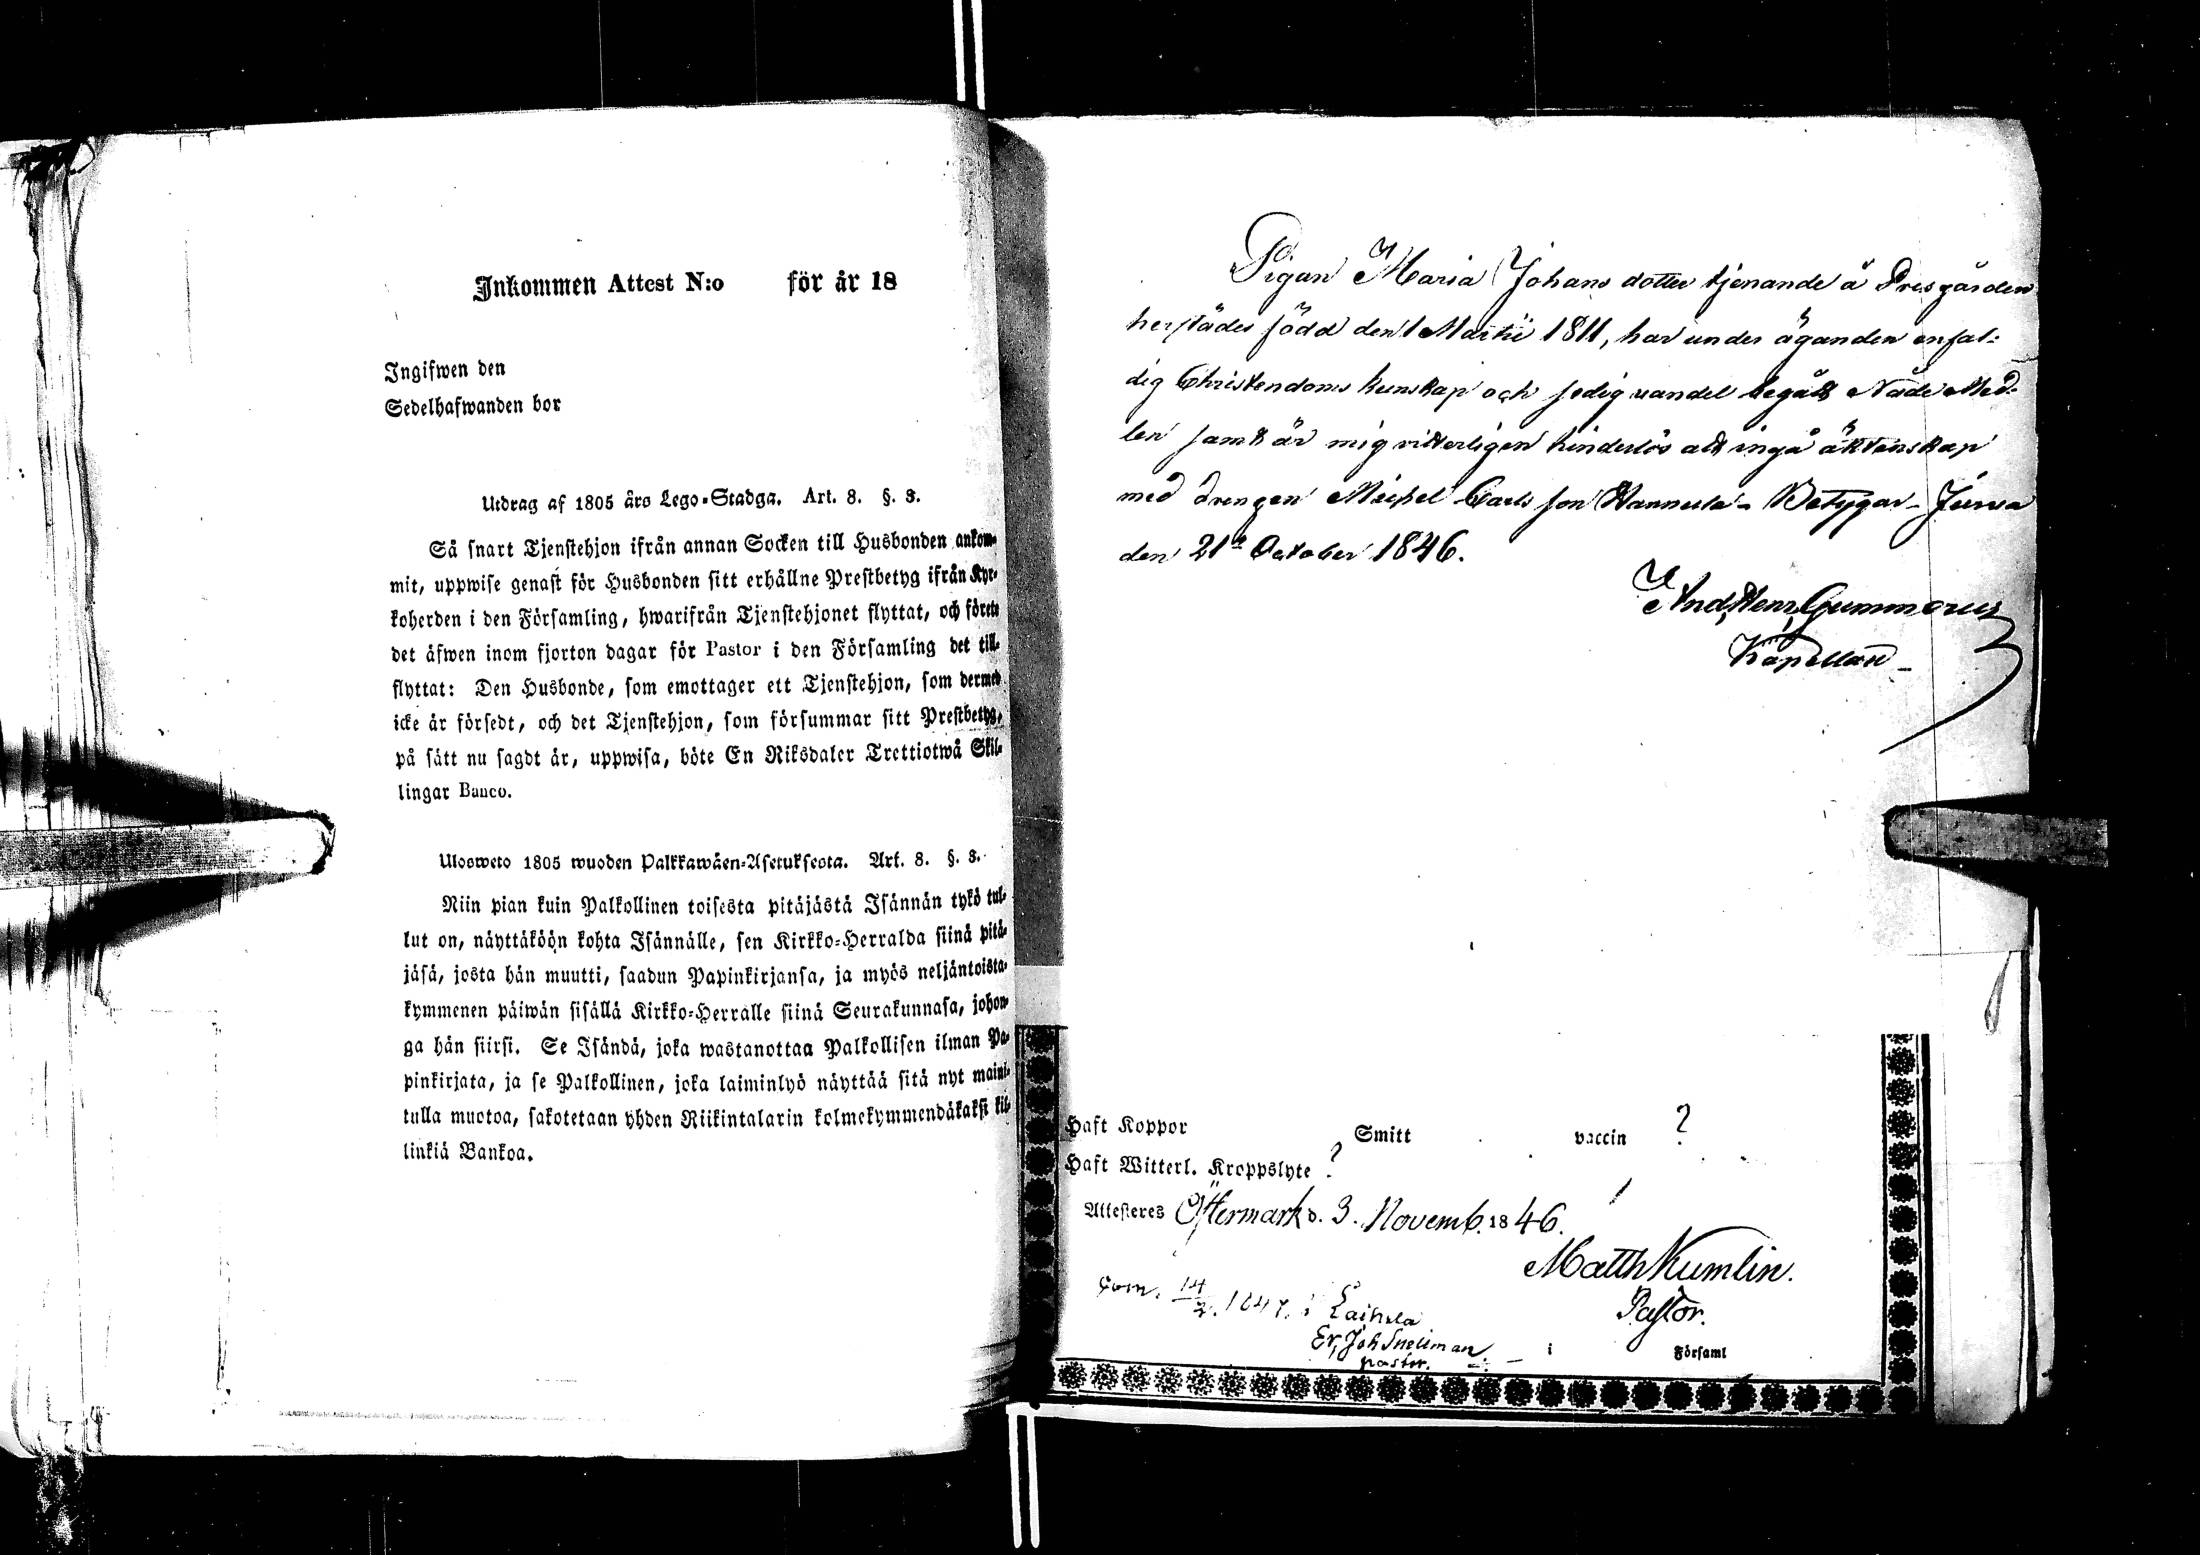 Inkommen Attest N:o för år 18
Ingifwen den
Sedelhafwanden bor
Utdrag af 1805 års Lego-Stadga. Art. 8. §. 3.
Så snart Tjenstehjon ifrån annan Socken till Husbonden ankom-
mit, uppwise genast för Husbonden sitt erhållne Prestbetyg ifrån Kyr-
koherden i den Församling, hwarifrån Tjenstehjonet flyttat, och förete
det äfwen inom fjorton dagar för Pastor i den Församling det till-
flyttat: Den Husbonde, som emottager ett Tjenstehjon, som dermed
icke är försedt, och det Tjenstehjon, som försummar sitt Prestbetyg,
på sätt nu sagdt är, uppwisa, böte En Riksdaler Trettiotwå Skil-
lingar Banco.
Ulosweto 1805 wuoden Palkkawäen-Asetuksesta. Art. 8. §. 3.
Niin pian kuin Palkollinen toisesta pitäjästä Isännän tykö tul-
lut on, näyttäköön kohta Isännälle, sen Kirkko-Herralda siinä pitä-
jäsä, josta hän muutti, saadun Papinkirjansa, ja myös neljäntoista-
kymmenen päiwän sisällä Kirkko-Herralle siinä Seurakunnasa, johon-
ga hän siirsi. Se Isändä, joka wastanottaa Palkollisen ilman Pa-
pinkirjata, ja se Palkollinen, joka laiminlyö näyttää sitä nyt maini-
tulla muotoa, sakotetaan yhden Riikintalarin kolmekymmendäkaksi kil-
linkiä Bankoa.
Pigan Maria Johans dotter tjenande å Presgården
herstädes född den 1 Martii 1811, har under äganden enfal-
dig Christendoms kunskap och sedig vandel begått Nåde Med-
len samt är mig vitterligen hinderlös att ingå äktenskap
med drengen Michel Carls son Hannula - Betygar - Jurva
den 21a October 1846.
And. Henr. Gummerus
Kapellan
Haft Koppor Smitt vaccin ?
Haft Witterl. Kroppslyte ?
Attesteres Östermark d. 3. Novemb. 1846.
Matth Kumlin.
Pastor.
1847. i Laihela
Er. Joh Snellman
pastor.
i Församl